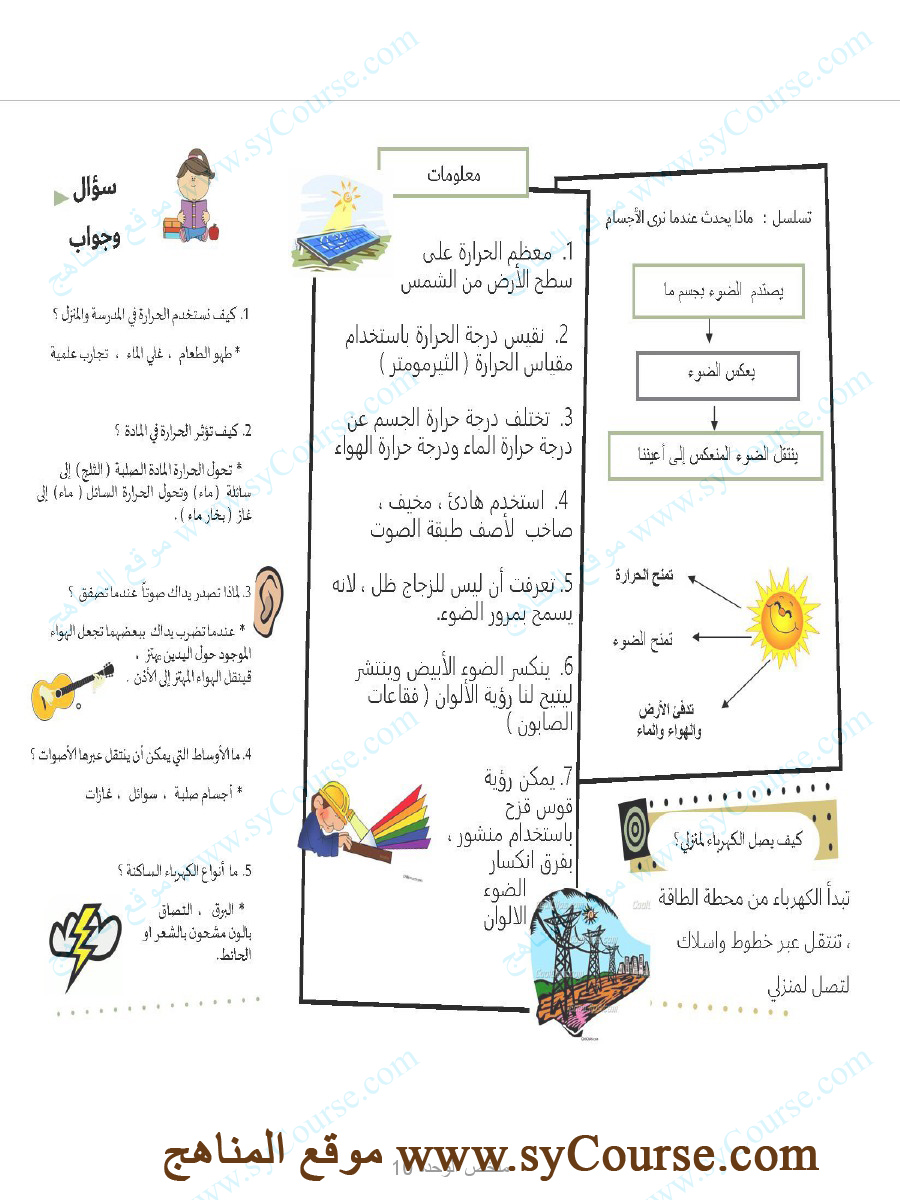 تسلسل : ماذا يحدث عندما نرى الأجسام
يصتدم الضوء بجسم ما
يعكس الضوء
ينتقل الضوء المنعكس إلى أعيننا
تمنح الحرارة
تمنح الضوء
تدفئ الأرض
والهواء والماء
كيف يصل الكهرباء لمنزلي؟
تبدأ الكهرباء من محطة الطاقة
، تنتقل عبر خطوط واسلاك
لتصل لمنزلي
معلومات
1. معظم الحرارة على
سطح الأرض من الشمس
2. نقيس درجة الحرارة باستخدام
مقياس الحرارة ( الثيرمومتر )
3. تختلف درجة حرارة الجسم عن
درجة حرارة الماء ودرجة حرارة الهواء
4. استخدم هادئ ، مخيف ،
صاخب لأصف طبقة الصوت
5. تعرفت أن ليس للزجاج ظل ، لانه
يسمح بمرور الضوء.
6. ينكسر الضوء الأبيض وينتشر
ليتيح لنا رؤية الألوان ( فقاعات
الصابون )
7. يمكن رؤية
قوس قزح
باستخدام منشور ،
يفرق انكسار
الضوء
الالوان
سؤال
وجواب
1. كيف نستخدم الحرارة في المدرسة والمنزل ؟
* طهو الطعام ، غلي الماء ، تجارب علمية
2. كيف تؤثر الحرارة في المادة ؟
* تحول الحرارة المادة الصلبة ( الثلج ) إلى
سائلة (ماء) وتحول الحرارة السائل ( ماء) إلى
غاز ( بخار ماء ) .
3. لماذا تصدر يداك صوتاً عندما تصفق ؟
* عندما تضرب يداك ببعضهما تجعل الهواء
الموجود حول اليدين يهتز ،
فينقل الهواء المهتز إلى الأذن .
4. ما الأوساط التي يمكن أن ينتقل عبرها الأصوات ؟
* أجسام صلبة ، سوائل ، غازات
5. ما أنواع الكهرباء الساكنة ؟
* البرق ، التصاق
بالون مشحون بالشعر او
الحائط.
موقع المناهج www.syCourse.com